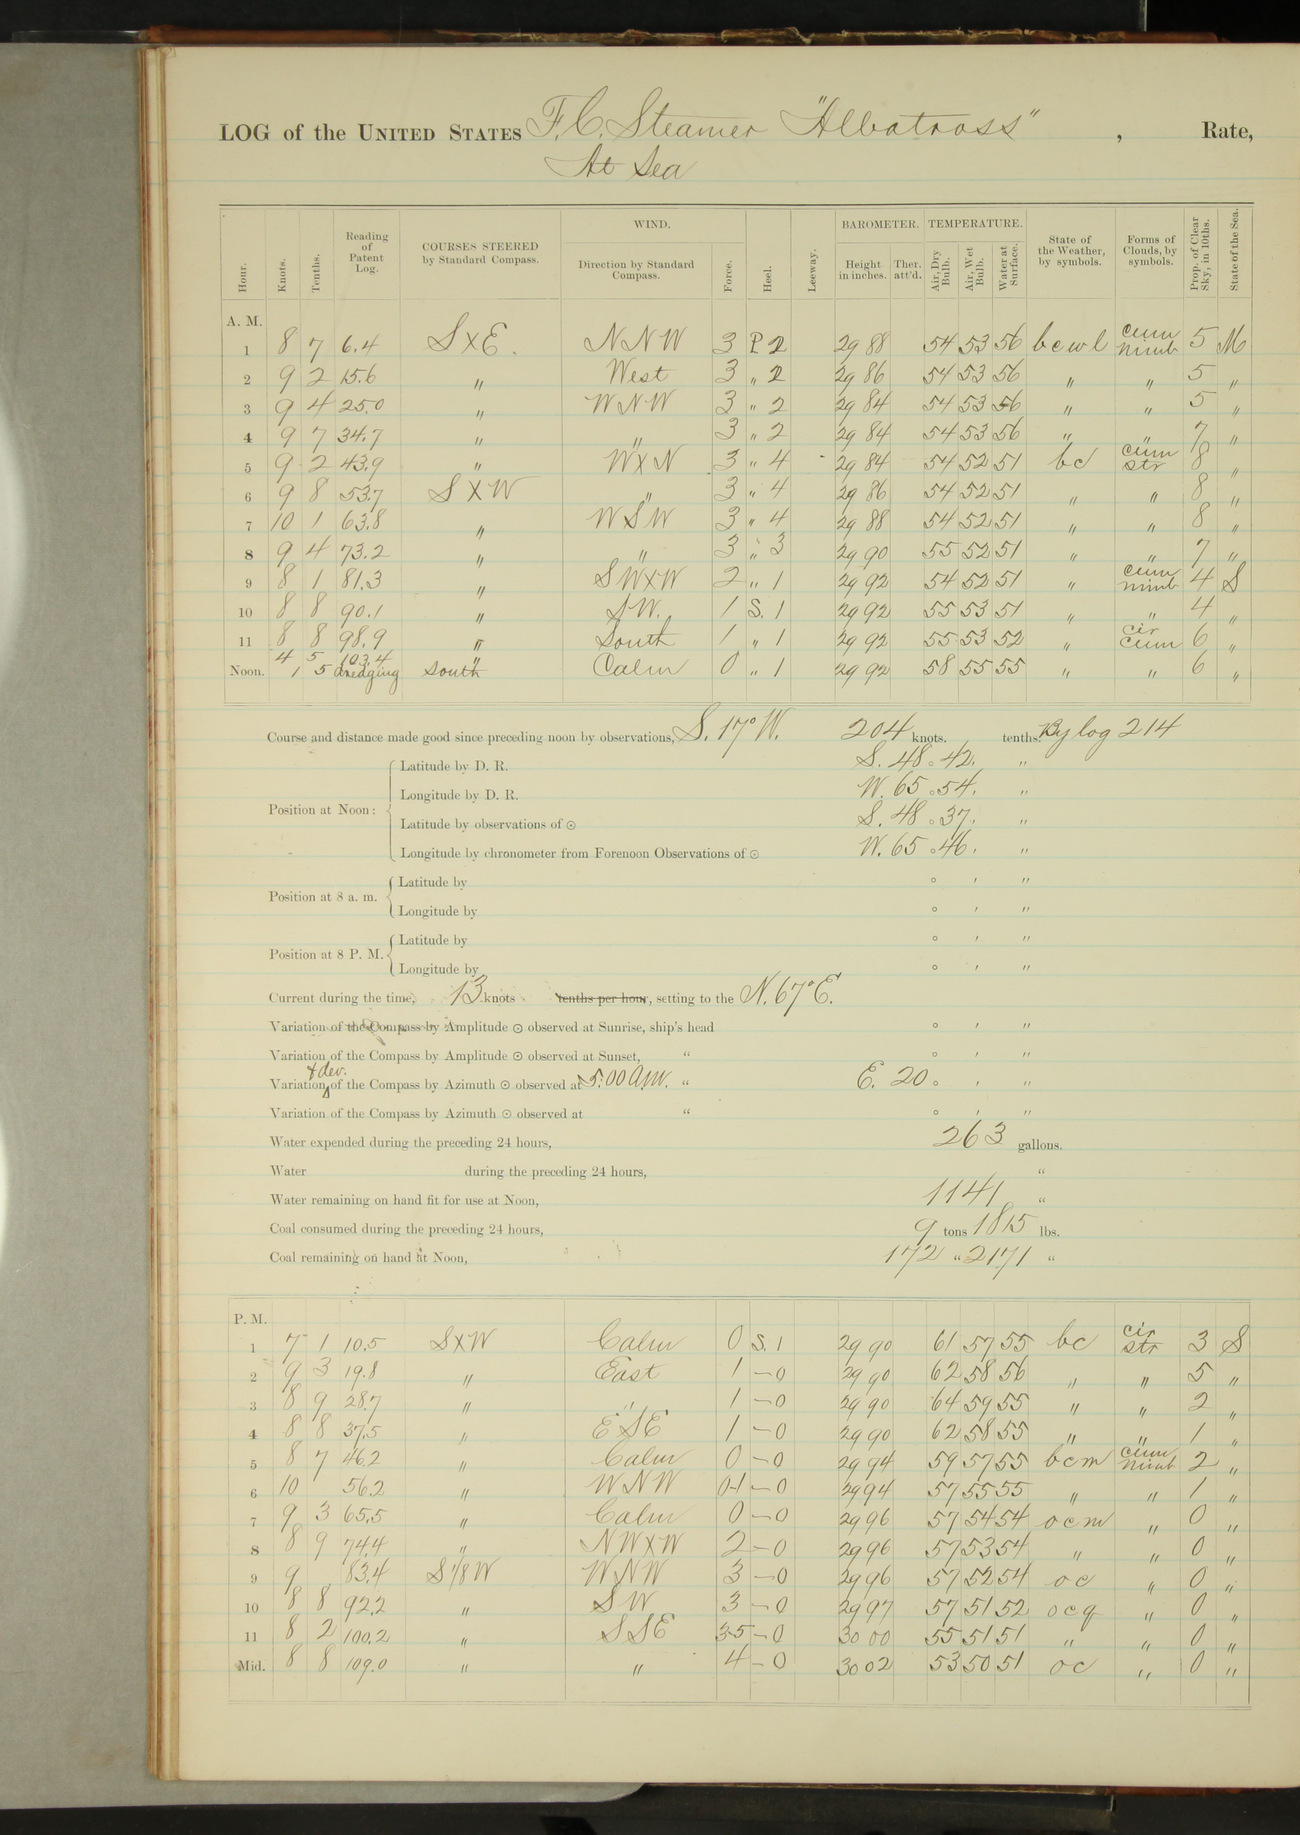 LOG of the UNITED STATES F.C. Steamer "Albatross" , Rate,
At Sea
Hour. Knots. Tenths. Reading of Patent Log. COURSES STEERED by Standard Compass. WIND. Direction by Standard Compass. Force. Heel. Leeway. BAROMETER. Height in inches. Ther. att'd. TEMPERATURE. Air, Dry Bulb. Air, Wet Bulb. Water at Surface. State of the Weather, by symbols. Forms of Clouds, by symbols. Prop. of Clear Sky, in 10ths. State of the Sea.
A. M.
1 8 7 6.4 SXE. NNW 3 P. 2 29 88 54 53 56 bcwl cum nimb 5 M
2 9 2 15.6 " West 3 " 2 29 86 54 53 56 " " 5 "
3 9 4 25.0 " WNW 3 " 2 29 84 54 53 56 " " 5 "
4 9 7 34.7 " " 3 " 2 29 84 54 53 56 " " 7 "
5 9 2 43.9 " WXN 3 " 4 29 84 54 52 51 bc cum str 8 "
6 9 8 53.7 SXW " 3 " 4 29 86 54 52 51 " " 8 "
7 10 1 63.8 " WSW 3 " 4 29 88 54 52 51 " " 8 "
8 9 4 73.2 " " 3 " 3 29 90 55 52 51 " " 7 "
9 8 1 81.3 " SWXW 2 " 1 29 92 54 52 51 " cum nimb 4 S
10 8 8 90.1 " SW. 1 S. 1 29 92 55 53 51 " " 4 "
11 8 8 98.9 " South 1 " 1 29 92 55 53 52 " cir cum 6 "
4 5 103.4 "
Noon. 1 5 dredging South Calm 0 " 1 29 92 58 55 55 " " 6 "
Course and distance made good since preceding noon by observations, S. 17° W. 204 knots. tenths. By log 214
Latitude by D. R. S. 48 ° 42 ' "
Longitude by D. R. W. 65 ° 54 ' "
Position at Noon:
Latitude by observations of ☉ S. 48 ° 37 ' "
Longitude by chronometer from Forenoon Observations of ☉ W. 65 ° 46 ' "
Latitude by ° ' "
Position at 8 a. m.
Longitude by ° ' "
Latitude by ° ' "
Position at 8 P. M.
Longitude by ° ' "
Current during the time, 13 knots tenths per hour, setting to the N. 67° E.
Variation of the Compass by Amplitude ☉ observed at Sunrise, ship's head ° ' "
Variation of the Compass by Amplitude ☉ observed at Sunset, " ° ' "
& dev.
Variation of the Compass by Azimuth ☉ observed at 5:00 A.M. " E. 20 ° ' "
Variation of the Compass by Azimuth ☉ observed at " ° ' "
Water expended during the preceding 24 hours, 263 gallons.
Water during the preceding 24 hours, "
Water remaining on hand fit for use at Noon, 1141 "
Coal consumed during the preceding 24 hours, 9 tons 1815 lbs.
Coal remaining on hand at Noon, 172 " 2171 "
P. M.
1 7 1 10.5 SXW Calm 0 S. 1 29 90 61 57 55 bc cir str 3 S
2 9 3 19.8 " East 1 - 0 29 90 62 58 56 " " 5 "
3 8 9 28.7 " " 1 - 0 29 90 64 59 55 " " 2 "
4 8 8 37.5 " ESE 1 - 0 29 90 62 58 55 " " 1 "
5 8 7 46.2 " Calm 0 - 0 29 94 59 57 55 bcm cum nimb 2 "
6 10 56.2 " WNW 0-1 - 0 29 94 57 55 55 " " 1 "
7 9 3 65.5 " Calm 0 - 0 29 96 57 54 54 ocm " 0 "
8 8 9 74.4 " NWXW 2 - 0 29 96 57 53 54 " " 0 "
9 9 83.4 S 1/8 W WNW 3 - 0 29 96 57 52 54 oc " 0 "
10 8 8 92.2 " SW 3 - 0 29 97 57 51 52 ocq " 0 "
11 8 2 100.2 " SSE 3-5 - 0 30 00 55 51 51 " " 0 "
Mid. 8 8 109.0 " " 4 - 0 30 02 53 50 51 oc " 0 "